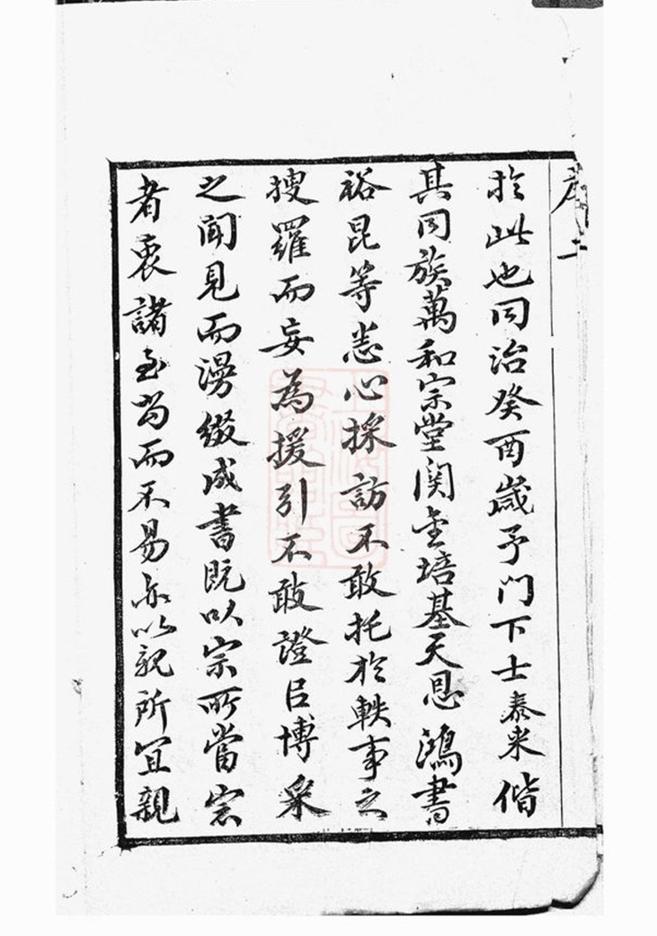 序 二
於此也同治癸酉歲予門下士泰来偕
其同族萬和宗堂関金培基天恩鴻書
裕昆等悉心採訪不敢托於軼事之
搜羅而妄為援引不敢證㠯博采
之聞見而漫綴成書既以宗所當宗
者衷諸至當而不易亦以親所宜親